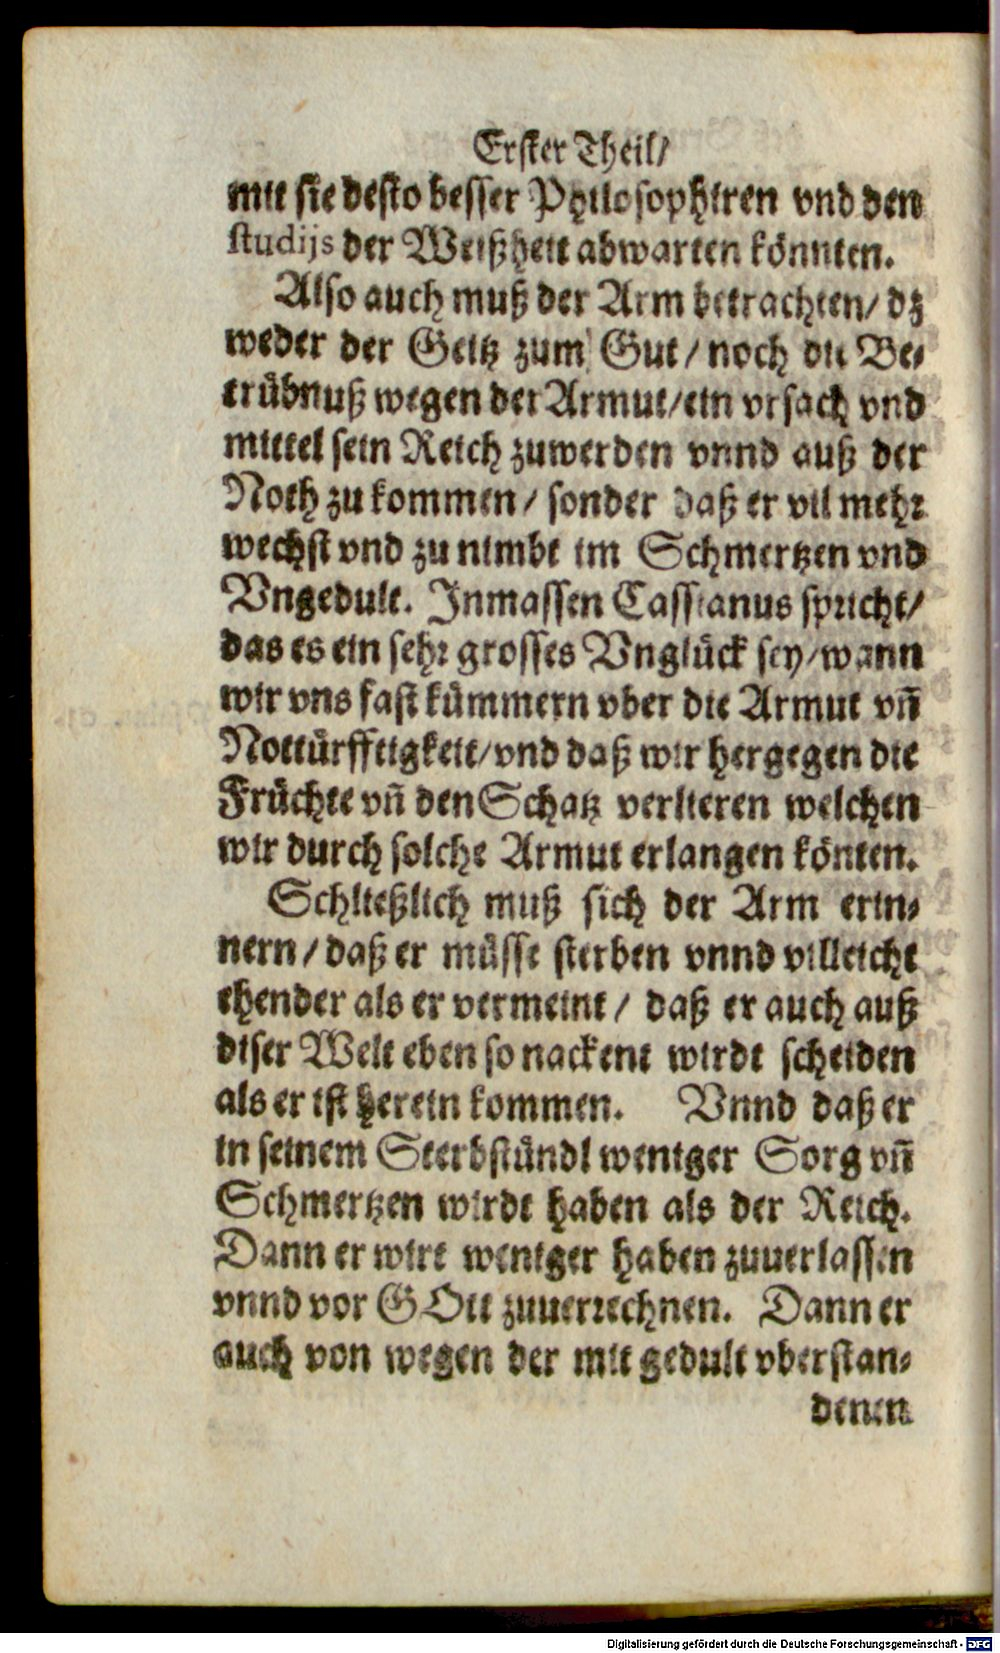 Erster Theil/
mit sie desto besser Philosophiren vnd den
studijs der Weißheit abwarten könnten.
Also auch muß der Arm betrachten/ dz
weder der Geitz zum Gut/ noch die Be-
trübnuß wegen der Armut/ ein vrsach vnd
mittel sein Reich zuwerden vnnd auß der
Noth zu kommen/ sonder daß er vil mehr
wechst vnd zu nimbt im Schmertzen vnd
Vngedult. Inmassen Cassianus spricht/
das es ein sehr grosses Vnglück sey/ wann
wir vns fast kümmern vber die Armut vñ
Nottürfftigkeit/ vnd daß wir hergegen die
Früchte vñ den Schatz verlieren welchen
wir durch solche Armut erlangen könten.
Schließlich muß sich der Arm erin-
nern/ daß er müsse sterben vnnd villeicht
ehender als er vermeint/ daß er auch auß
diser Welt eben so nackent wirdt scheiden
als er ist herein kommen. Vnnd daß er
in seinem Sterbstündl weniger Sorg vñ
Schmertzen wirdt haben als der Reich.
Dann er wirt weniger haben zuuerlassen
vnnd vor GOtt zuuerrechnen. Dann er
auch von wegen der mit gedult vberstan-
denen
Digitalisierung gefördert durch die Deutsche Forschungsgemeinschaft - DFG